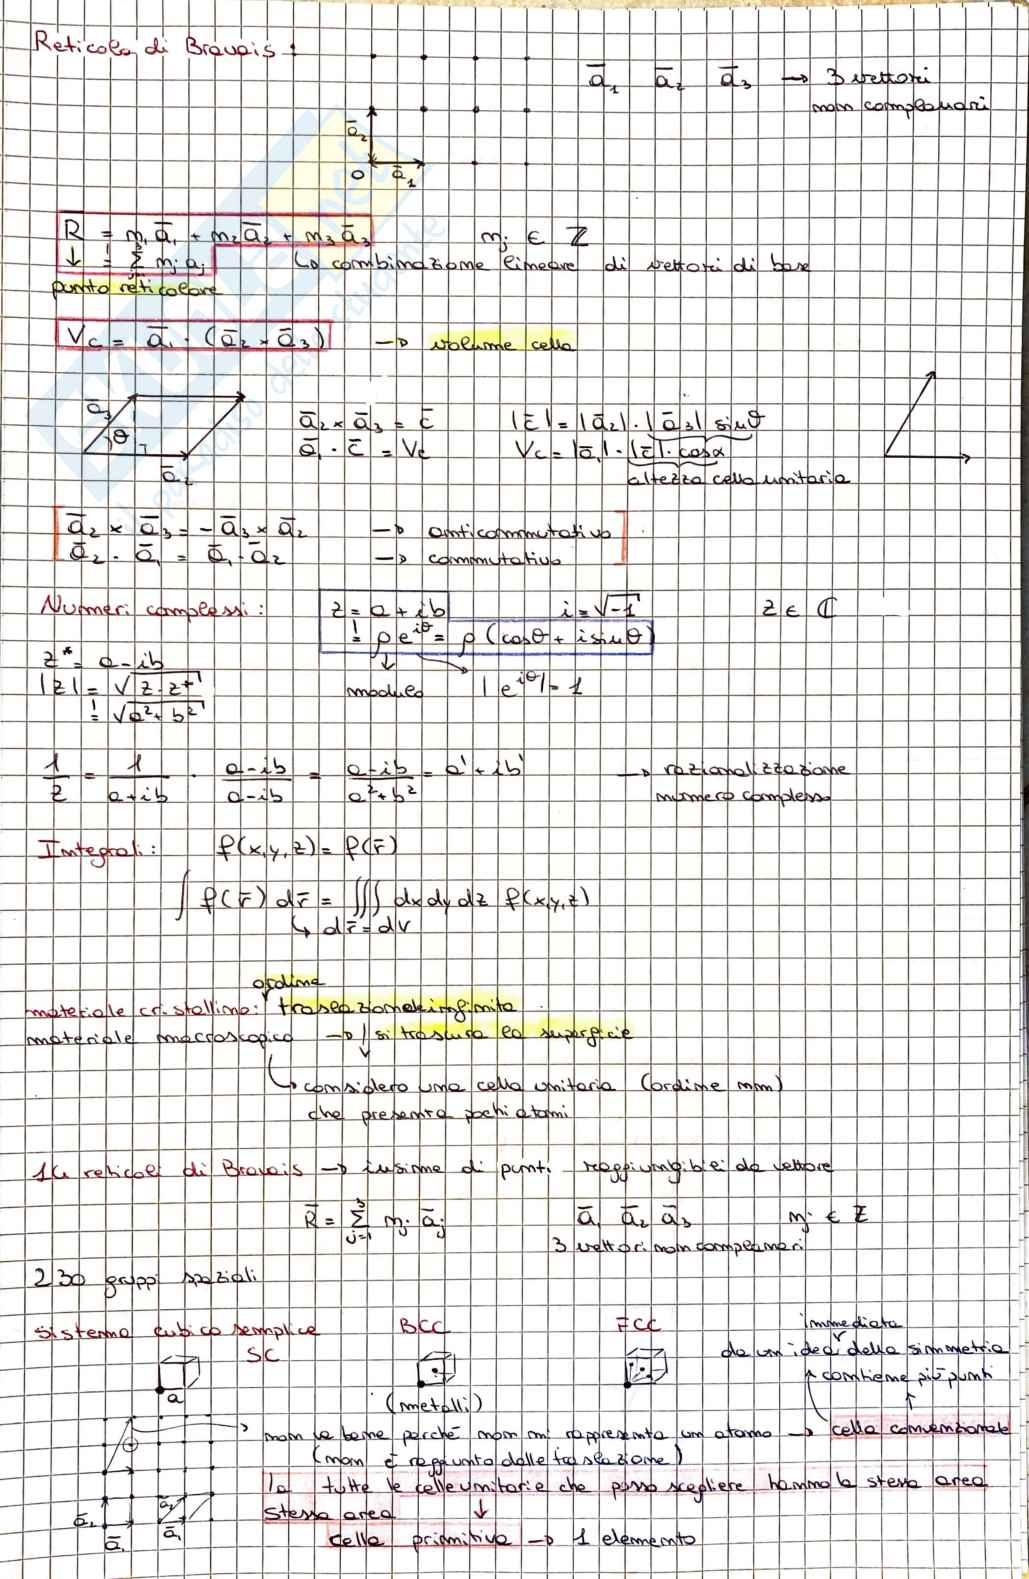 Reticolo di Bravais:
ā₁ ā₂ ā₃ → 3 vettori
non complanari
ā₂
0 ā₁
R = m₁ā₁ + m₂ā₂ + m₃ā₃ mⱼ ∈ ℤ
↓ = Σ mⱼ aⱼ ↳ combinazione lineare di vettori di base
punto reticolare
Vc = ā₁ · (ā₂ × ā₃) → volume cella
ā₃
θ
ā₂
ā₂ × ā₃ = c̄ |c̄| = |ā₂| · |ā₃| sinθ
ā₁ · c̄ = Vc Vc = |ā₁| · |c̄| · cosα
altezza cella unitaria
ā₂ × ā₃ = - ā₃ × ā₂ → anticommutativo
ā₂ · ā₁ = ā₁ · ā₂ → commutativo
Numeri complessi: z = a + ib i = √-1 z ∈ ℂ
= ρe^{iθ} = ρ (cosθ + i sinθ)
z* = a - ib
|z| = √z · z* modulo |e^{iθ}| = 1
= √a² + b²
1/z = 1/(a+ib) · (a-ib)/(a-ib) = (a-ib)/(a²+b²) = a' + ib' → razionalizzazione
numero complesso
Integrali: f(x,y,z) = f(r̄)
∫ f(r̄) dr̄ = ∭ dx dy dz f(x,y,z)
↳ dr̄ = dV
ordine
materiale cristallino: traslazionale infinito
materiale macroscopico → si trascura la superficie
↳ considero una cella unitaria (ordine nm)
che presenta pochi atomi
14 reticoli di Bravais → insieme di punti raggiungibili da vettore
R̄ = Σ_{j=1}^{3} mⱼ āⱼ ā₁ ā₂ ā₃ mⱼ ∈ ℤ
3 vettori non complanari
230 gruppi spaziali
sistema cubico semplice BCC FCC immediata
SC da un idea della simmetria
a contiene più punti
(metalli)
non va bene perché non mi rappresenta un atomo → cella convenzionale
(non è raggiunto dalle traslazione)
tutte le celle unitarie che posso scegliere hanno la stessa area
stessa area ↓
ā₂ ā₂
ā₁ ā₁
cella primitiva → 1 elemento